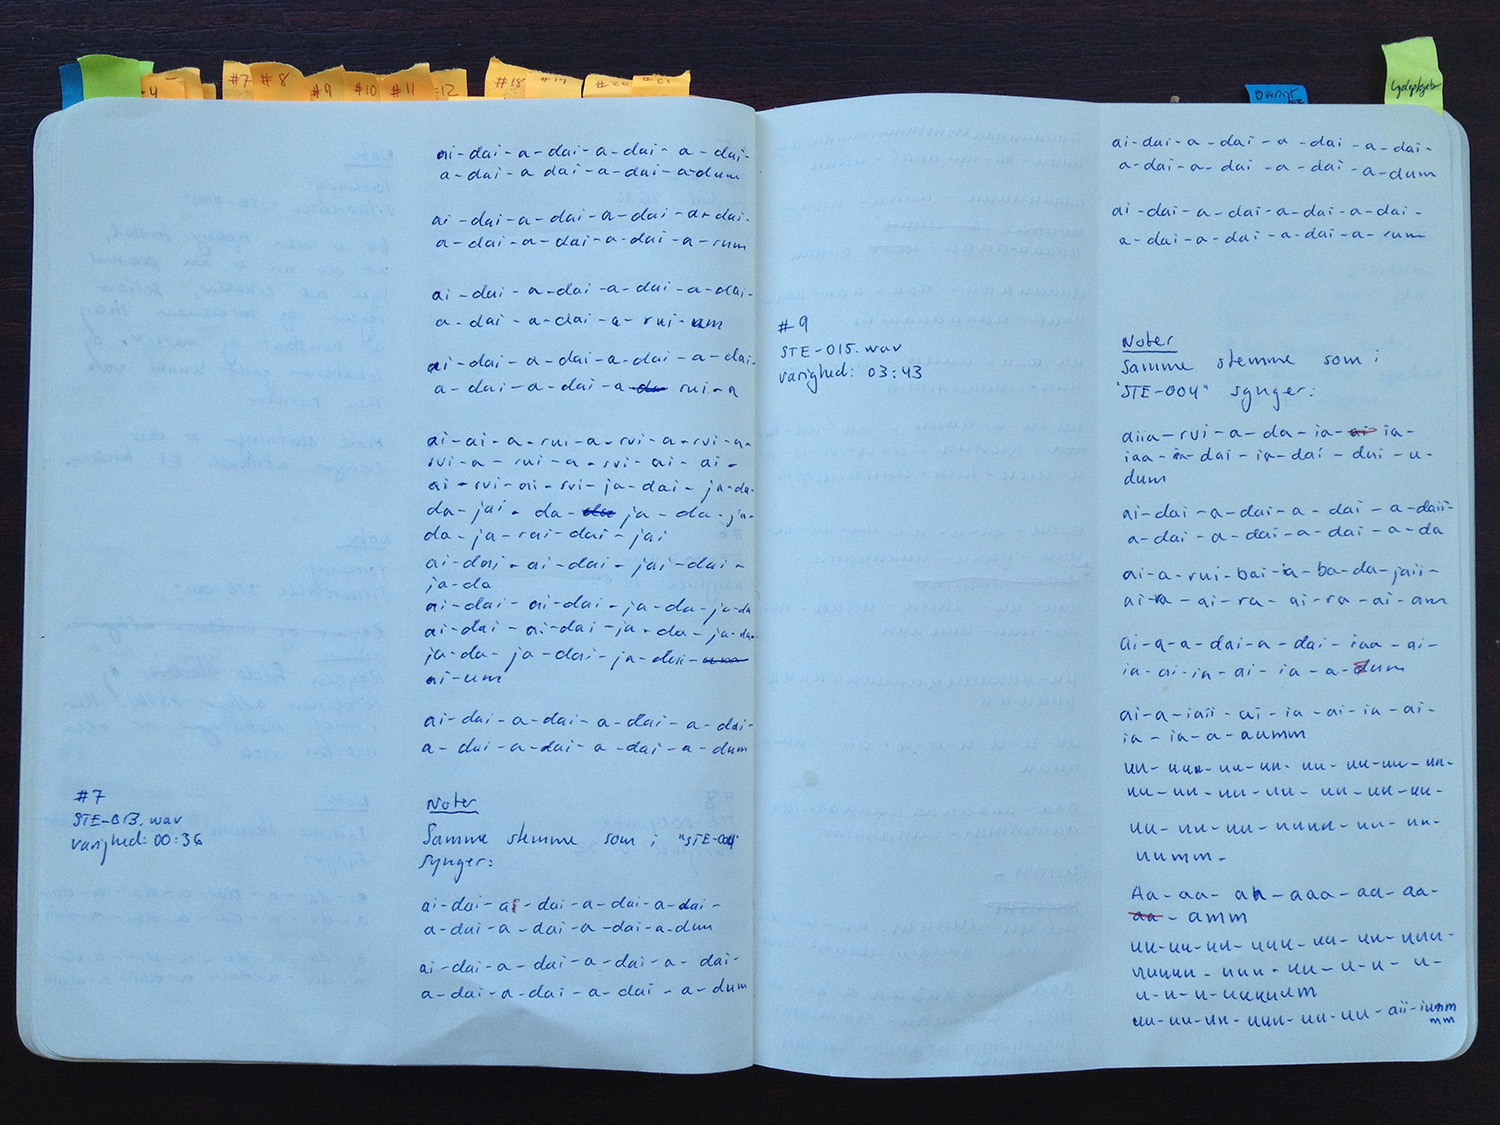 #7
#8
#9
#10
#11
#12
#18
ai-dai-a-dai-a-dai-a-dai-
a-dai-a dai-a-dai-a-dum
ai-dai-a-dai-a-dai-a-dai-
a-dai-a-dai-a-dai-a-rum
ai-dai-a-dai-a-dai-a-dai-
a-dai-a-dai-a-rui-um
ai-dai-a-dai-a-dai-a-dai-
a-dai-a-dai-a rui-a
ai-ai-a-rui-a-rui-a-rui-a-
rui-a-rui-a-rui-ai-ai-
ai-rui-ai-rui-ja-dai-ja-da-
da-jai-da-ja-da-ja-
da-ja-rai-dai-jai
ai-dai-ai-dai-jai-dai-
ja-da
ai-dai-ai-dai-ja-da-ja-da
ai-dai-ai-dai-ja-da-ja-da-
ja-da-ja-dai-ja-dai-
ai-um
ai-dai-a-dai-a-dai-a-dai-
a-dai-a-dai-a-dai-a-dum
#7
STE-013.wav
varighed: 00:36
Noter
Samme stemme som i "STE-004"
synger:
ai-dai-a-dai-a-dai-a-dai-
a-dai-a-dai-a-dai-a-dum
ai-dai-a-dai-a-dai-a-dai-
a-dai-a-dai-a-dai-a-dum
ai-dai-a-dai-a-dai-a-dai-
a-dai-a-dai-a-dai-a-dum
ai-dai-a-dai-a-dai-a-dai-
a-dai-a-dai-a-dai-a-rum
#9
STE-015.wav
varighed: 03:43
Noter
Samme stemme som i
"STE-004" synger:
aiia-rui-a-da-ia-ai ia-
iaa-ia-dai-ia-dai-dai-u-
dum
ai-dai-a-dai-a-dai-a-daii-
a-dai-a-dai-a-dai-a-da
ai-a-rui-bai-ia-ba-da-jaii-
ai-ra-ai-ra-ai-ra-ai-am
ai-a-a-dai-a-dai-iaa-ai-
ia-ai-ia-ai-ia-a-dum
ai-a-iaii-ai-ia-ai-ia-ai-
ia-ia-a-aumm
uu-uuu-uu-uu-uu-uu-uu-uu-
uu-uu-uu-uu-uu-uu-uu-
uu-uu-uu-uuuu-uu-uu-
uumm-
Aa-aa-ah-aaa-aa-aa-
aa-amm
uu-uu-uu-uuu-uu-uu-uuu-
uuuuu-uuu-uu-u-u-u-
u-u-u-uuuuum
uu-uu-uu-uuu-uu-uu-uu-aii-iumm
mm